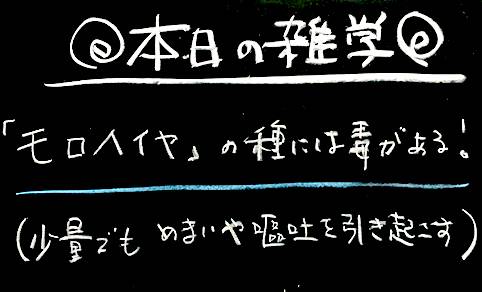 @本日の雑学@
「モロヘイヤ」の種には毒がある!
(少量でも めまいや嘔吐を引き起こす)